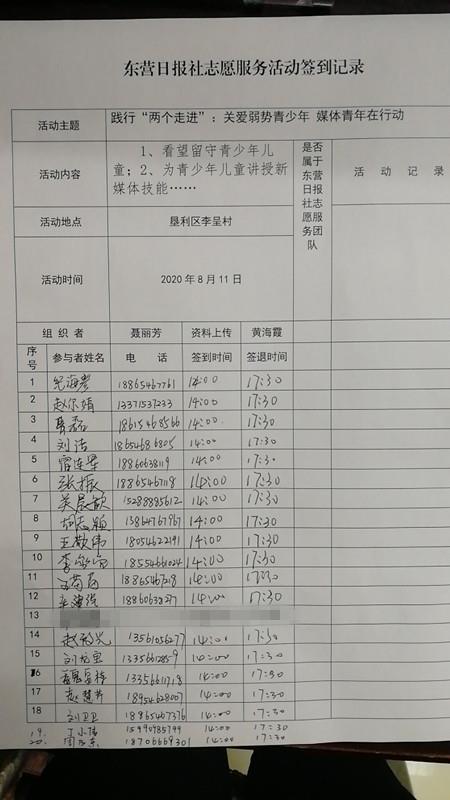 东营日报社志愿服务活动签到记录
活动主题 践行“两个走进”：关爱弱势青少年 媒体青年在行动
活动内容 1、看望留守青少年儿童；2、为青少年儿童讲授新媒体技能…… 是否属于东营日报社志愿服务团队 活动记录
活动地点 垦利区李呈村
活动时间 2020年8月11日
组织者 聂丽芳 资料上传 黄海霞
序号 参与者姓名 电话 签到时间 签退时间
1 18865467761 14:00 17:30
2 赵尔婧 13371537233 14:00 17:30
3 18615468566 14:00 17:30
4 刘洁 18654686805 14:00 17:30
5 18860638119 14:00 17:30
6 张振 18865467118 14:00 17:30
7 吴晨歆 15288885612 14:00 17:30
8 胡志颖 13864767967 14:00 17:30
9 王敬伟 18054622191 14:00 17:30
10 18554661024 14:00 17:30
11 18865467218 14:00 17:30
12 18860638277 14:00 17:30
13
14 13561056277 14:00 17:30
15 刘龙宝 13356612859 14:00 17:30
16 13356611718 14:00 17:30
17 赵慧 18954628007 14:00 17:30
18 刘卫卫 18865467376 14:00 17:30
19. 丁小倩 15990985799 14:00 17:30
20. 18706669301 14:00 17:30